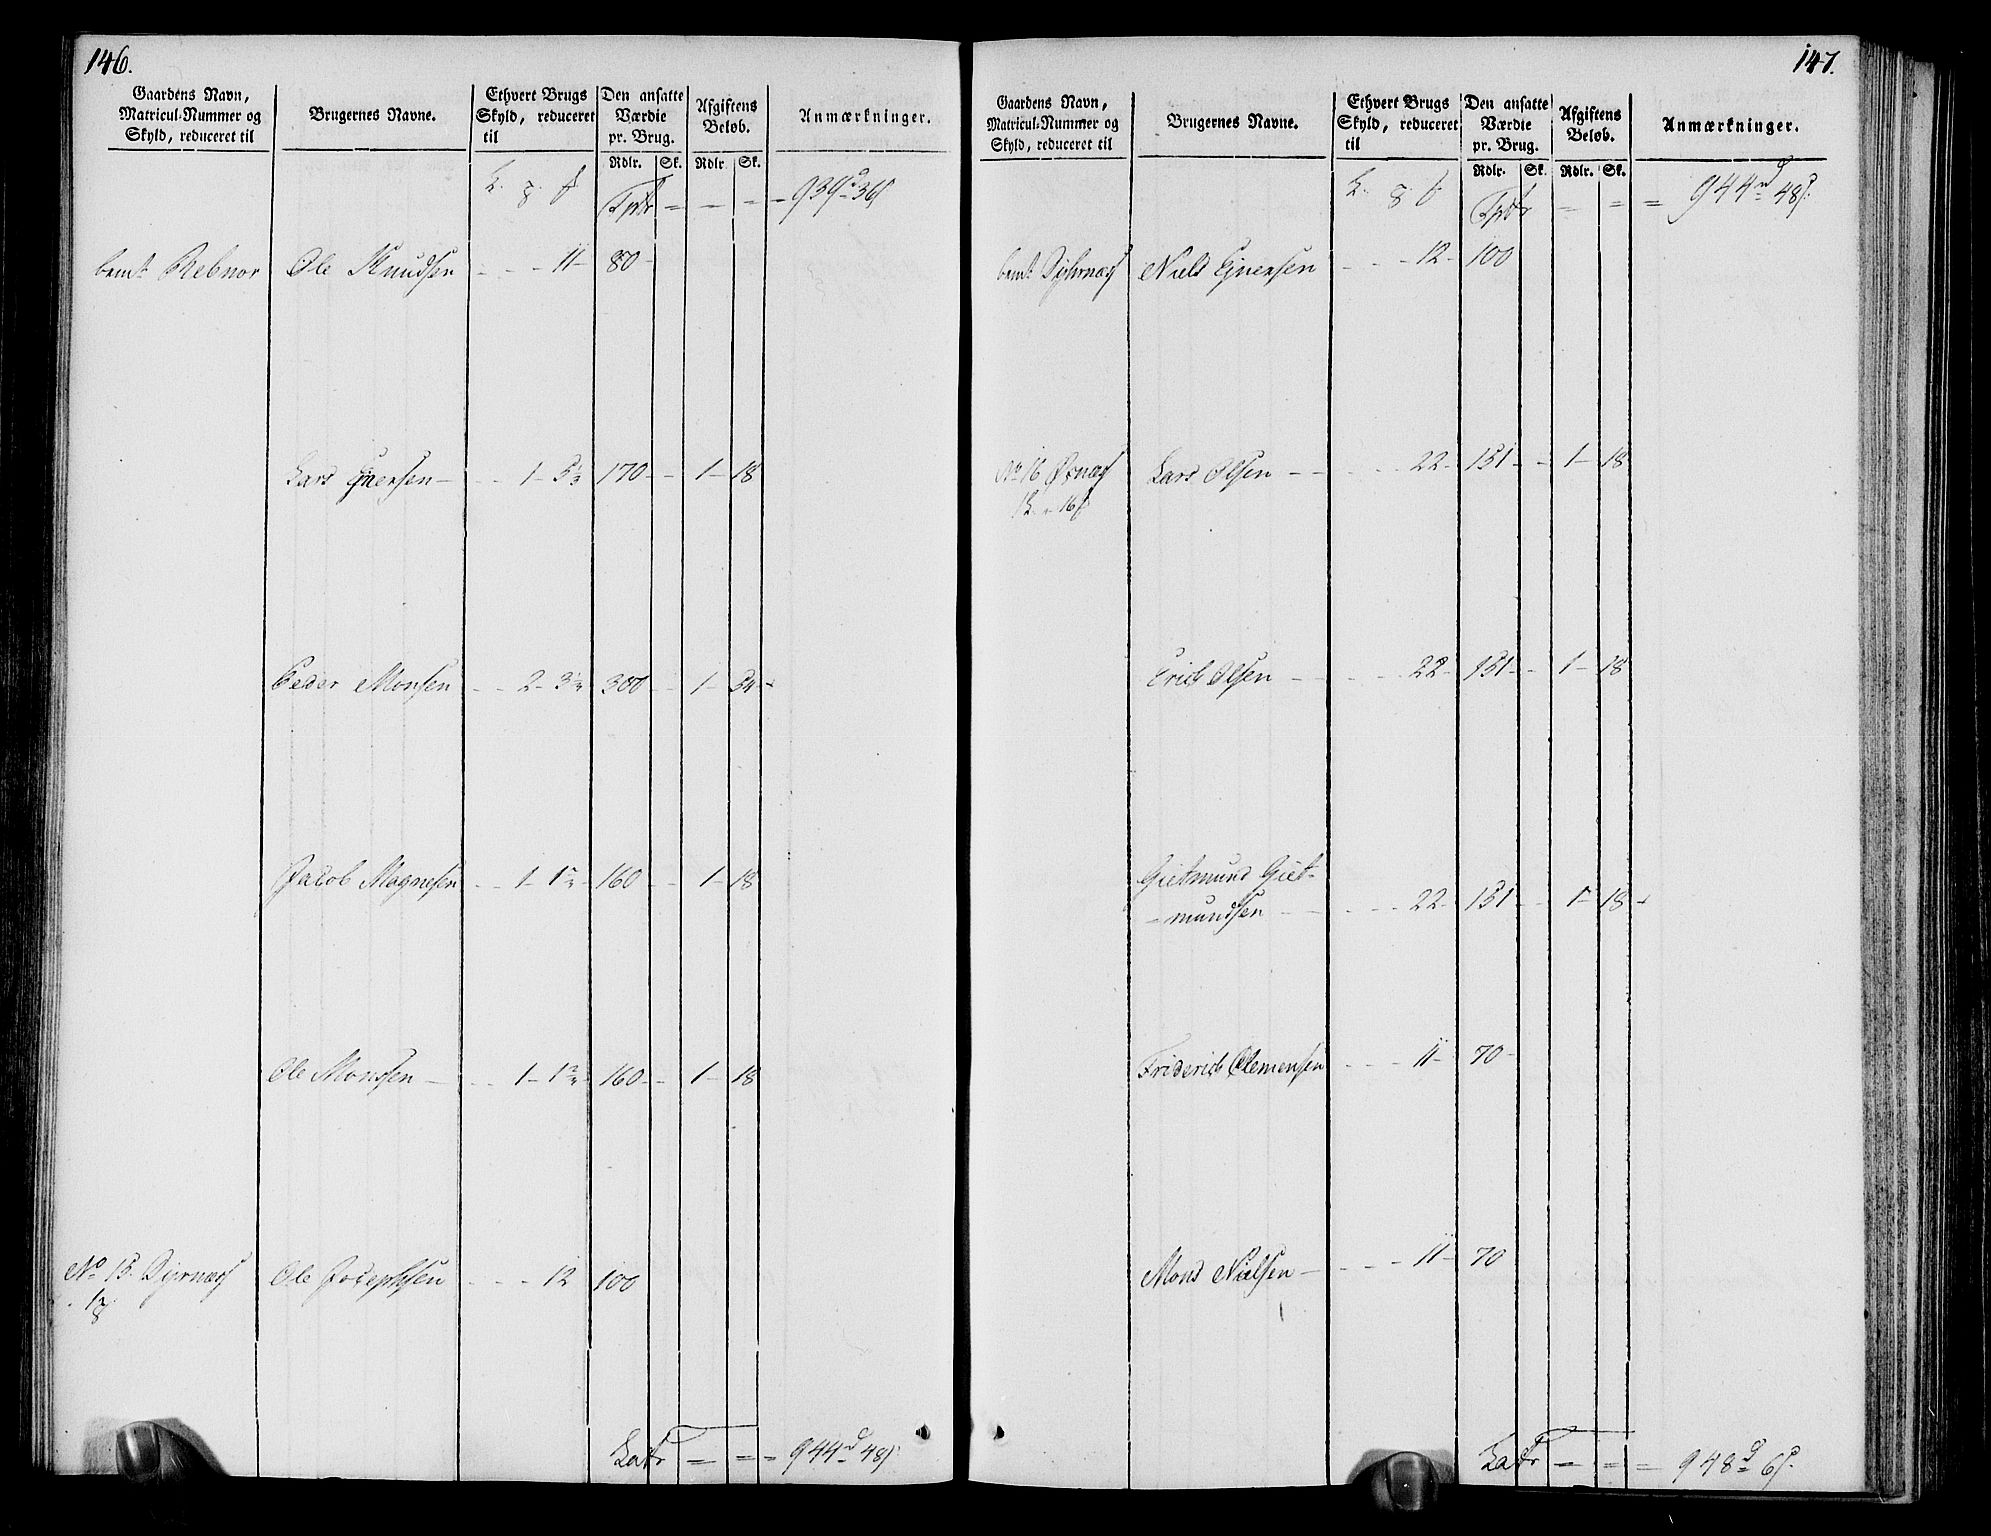 146.
Gaardens Navn, Matricul-Nummer og Skyld, reduceret til
Brugernes Navne.
Ethvert Brugs Skyld, reduceret til
Den ansatte Værdie pr. Brug.
Afgiftens Beløb.
Anmærkninger.
Rdlr. Sk. Rdlr. Sk.
Tptr = = = = 939 d 36 s
bemt Rebnor Ole Knudsen - - - 11 - 80 -
Lars Ejnersen - - - 1 - 5 1/3 170 - - 1 - 18
Peder Monsen - - 2 - 3 300 - - 1 - 54 -
Jacob Magnesen - - 1 - 1 160 - - 1 - 18
Ole Monsen - - - 1 - 1 160 - - 1 - 18
No 15. Dyrnæs Ole Josephsen - - - 12 100
Latr = = = 944 d 48 s
147.
Gaardens Navn, Matricul-Nummer og Skyld, reduceret til
Brugernes Navne.
Ethvert Brugs Skyld, reduceret til
Den ansatte Værdie pr. Brug.
Afgiftens Beløb.
Anmærkninger.
Rdlr. Sk. Rdlr. Sk.
Tptr = = = 944 d 48 s
bemt Dyrnæs Niels Ejnersen - - - 12 - 100
No 16 Øsnæs Lars Olsen - - - - - 22 - 151 - - 1 - 18
16
Erich Olsen - - - - - 22 - 151 - - 1 - 18
Gietmund Giet-
-mundsen - - - - - 22 - 151 - - 1 - 18 -
Friderich Clemensen - - - 11 - 70 -
Mons Nielsen - - - - 11 - 70
Latr = = = 948 d 6 s